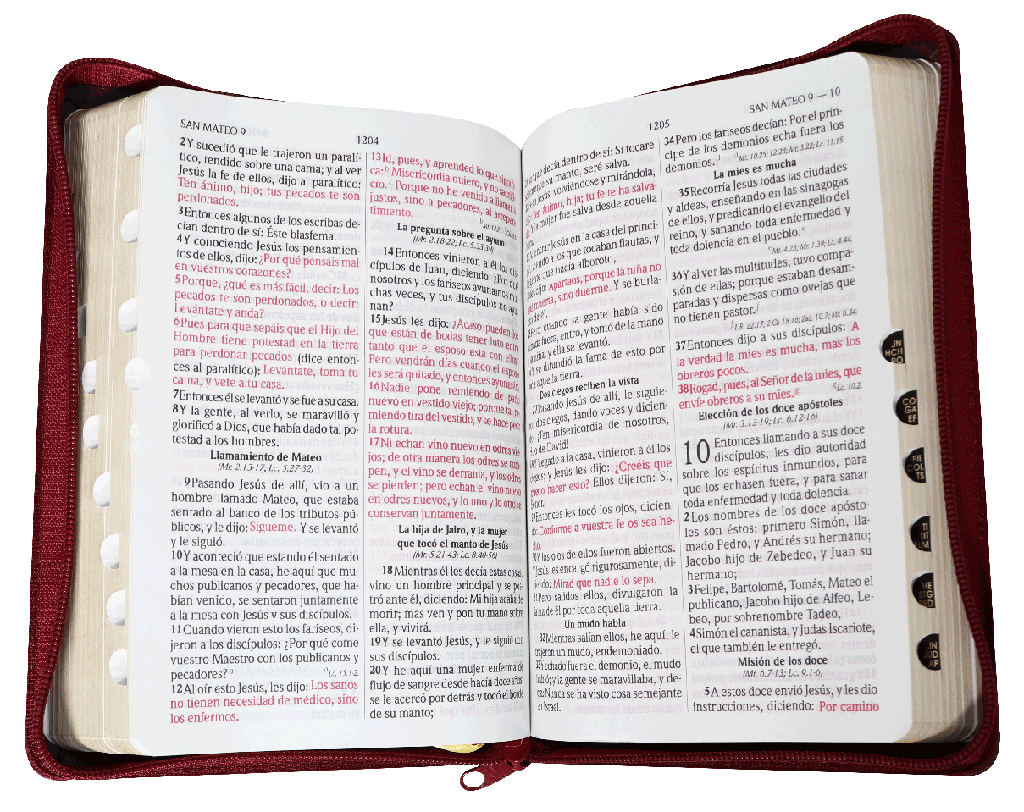 SAN MATEO 9
1204
2Y sucedió que le trajeron un paralí-
tico, tendido sobre una cama; y al ver
Jesús la fe de ellos, dijo al paralítico:
Ten ánimo, hijo; tus pecados te son
perdonados.
3Entonces algunos de los escribas de-
cían dentro de sí: Éste blasfema.
4Y conociendo Jesús los pensamien-
tos de ellos, dijo: ¿Por qué pensáis mal
en vuestros corazones?
5Porque, ¿qué es más fácil, decir: Los
pecados te son perdonados, o decir:
Levántate y anda?
6Pues para que sepáis que el Hijo del
Hombre tiene potestad en la tierra
para perdonar pecados (dice enton-
ces al paralítico): Levántate, toma tu
cama, y vete a tu casa.
7Entonces él se levantó y se fue a su casa.
8Y la gente, al verlo, se maravilló y
glorificó a Dios, que había dado tal po-
testad a los hombres.
Llamamiento de Mateo
(Mr. 2.13-17; Lc. 5.27-32)
9Pasando Jesús de allí, vio a un
hombre llamado Mateo, que estaba
sentado al banco de los tributos pú-
blicos, y le dijo: Sígueme. Y se levantó
y le siguió.
10Y aconteció que estando él sentado
a la mesa en la casa, he aquí que mu-
chos publicanos y pecadores, que ha-
bían venido, se sentaron juntamente
a la mesa con Jesús y sus discípulos.
11Cuando vieron esto los fariseos, di-
jeron a los discípulos: ¿Por qué come
vuestro Maestro con los publicanos y
pecadores?
12Al oír esto Jesús, les dijo: Los sanos
no tienen necesidad de médico, sino
los enfermos.
13Id, pues, y aprended lo que signifi-
ca: Misericordia quiero, y no sacrifi-
cio. Porque no he venido a llamar a
justos, sino a pecadores, al arrepen-
timiento.
La pregunta sobre el ayuno
(Mr. 2.18-22; Lc. 5.33-39)
14Entonces vinieron a él los dis-
cípulos de Juan, diciendo: ¿Por qué
nosotros y los fariseos ayunamos mu-
chas veces, y tus discípulos no ayu-
nan?
15Jesús les dijo: ¿Acaso pueden los
que están de bodas tener luto entre
tanto que el esposo está con ellos?
Pero vendrán días cuando el esposo
les será quitado, y entonces ayunarán.
16Nadie pone remiendo de paño
nuevo en vestido viejo; porque tal re-
miendo tira del vestido, y se hace peor
la rotura.
17Ni echan vino nuevo en odres vie-
jos; de otra manera los odres se rom-
pen, y el vino se derrama, y los odres
se pierden; pero echan el vino nuevo
en odres nuevos, y lo uno y lo otro se
conservan juntamente.
La hija de Jairo, y la mujer
que tocó el manto de Jesús
(Mr. 5.21-43; Lc. 8.40-56)
18Mientras él les decía estas cosas,
vino un hombre principal y se pos-
tró ante él, diciendo: Mi hija acaba de
morir; mas ven y pon tu mano sobre
ella, y vivirá.
19Y se levantó Jesús, y le siguió con
sus discípulos.
20Y he aquí una mujer enferma de
flujo de sangre desde hacía doce años
se le acercó por detrás y tocó el borde
de su manto;
1205
SAN MATEO 9 — 10
decía dentro de sí: Si tocare
su manto, seré salva.
Jesús, volviéndose y mirándola,
ánimo, hija; tu fe te ha salva-
la mujer fue salva desde aquella
entrar Jesús en la casa del princi-
a los que tocaban flautas, y
que hacía alboroto,
dijo: Apartaos, porque la niña no
muerta, sino duerme. Y se burla-
cuando la gente había sido
fuera, entró, y tomó de la mano
y ella se levantó.
se difundió la fama de esto por
aquella tierra.
Dos ciegos reciben la vista
Pasando Jesús de allí, le siguie-
dos ciegos, dando voces y dicien-
¡Ten misericordia de nosotros,
de David!
llegado a la casa, vinieron a él los
y Jesús les dijo: ¿Creéis que
hacer esto? Ellos dijeron: Sí,
Entonces les tocó los ojos, dicien-
Conforme a vuestra fe os sea he-
los ojos de ellos fueron abiertos.
Jesús les encargó rigurosamente, di-
Mirad que nadie lo sepa.
Pero salidos ellos, divulgaron la
fama de él por toda aquella tierra.
Un mudo habla
32Mientras salían ellos, he aquí, le
trajeron un mudo, endemoniado.
echado fuera el demonio, el mudo
y la gente se maravillaba, y de-
Nunca se ha visto cosa semejante
Israel.
34Pero los fariseos decían: Por el prín-
cipe de los demonios echa fuera los
demonios.
La mies es mucha
35Recorría Jesús todas las ciudades
y aldeas, enseñando en las sinagogas
de ellos, y predicando el evangelio del
reino, y sanando toda enfermedad y
toda dolencia en el pueblo.
36Y al ver las multitudes, tuvo compa-
sión de ellas; porque estaban desam-
paradas y dispersas como ovejas que
no tienen pastor.
37Entonces dijo a sus discípulos: A
la verdad la mies es mucha, mas los
obreros pocos.
38Rogad, pues, al Señor de la mies, que
envíe obreros a su mies.
Elección de los doce apóstoles
(Mr. 3.13-19; Lc. 6.12-16)
10 Entonces llamando a sus doce
discípulos, les dio autoridad
sobre los espíritus inmundos, para
que los echasen fuera, y para sanar
toda enfermedad y toda dolencia.
2Los nombres de los doce apósto-
les son éstos: primero Simón, lla-
mado Pedro, y Andrés su hermano;
Jacobo hijo de Zebedeo, y Juan su
hermano;
3Felipe, Bartolomé, Tomás, Mateo el
publicano, Jacobo hijo de Alfeo, Le-
beo, por sobrenombre Tadeo,
4Simón el cananista, y Judas Iscariote,
el que también le entregó.
Misión de los doce
(Mr. 6.7-13; Lc. 9.1-6)
5A estos doce envió Jesús, y les dio
instrucciones, diciendo: Por camino
JN
HCH
RO
CO
GA
EF
FIL
COL
TS